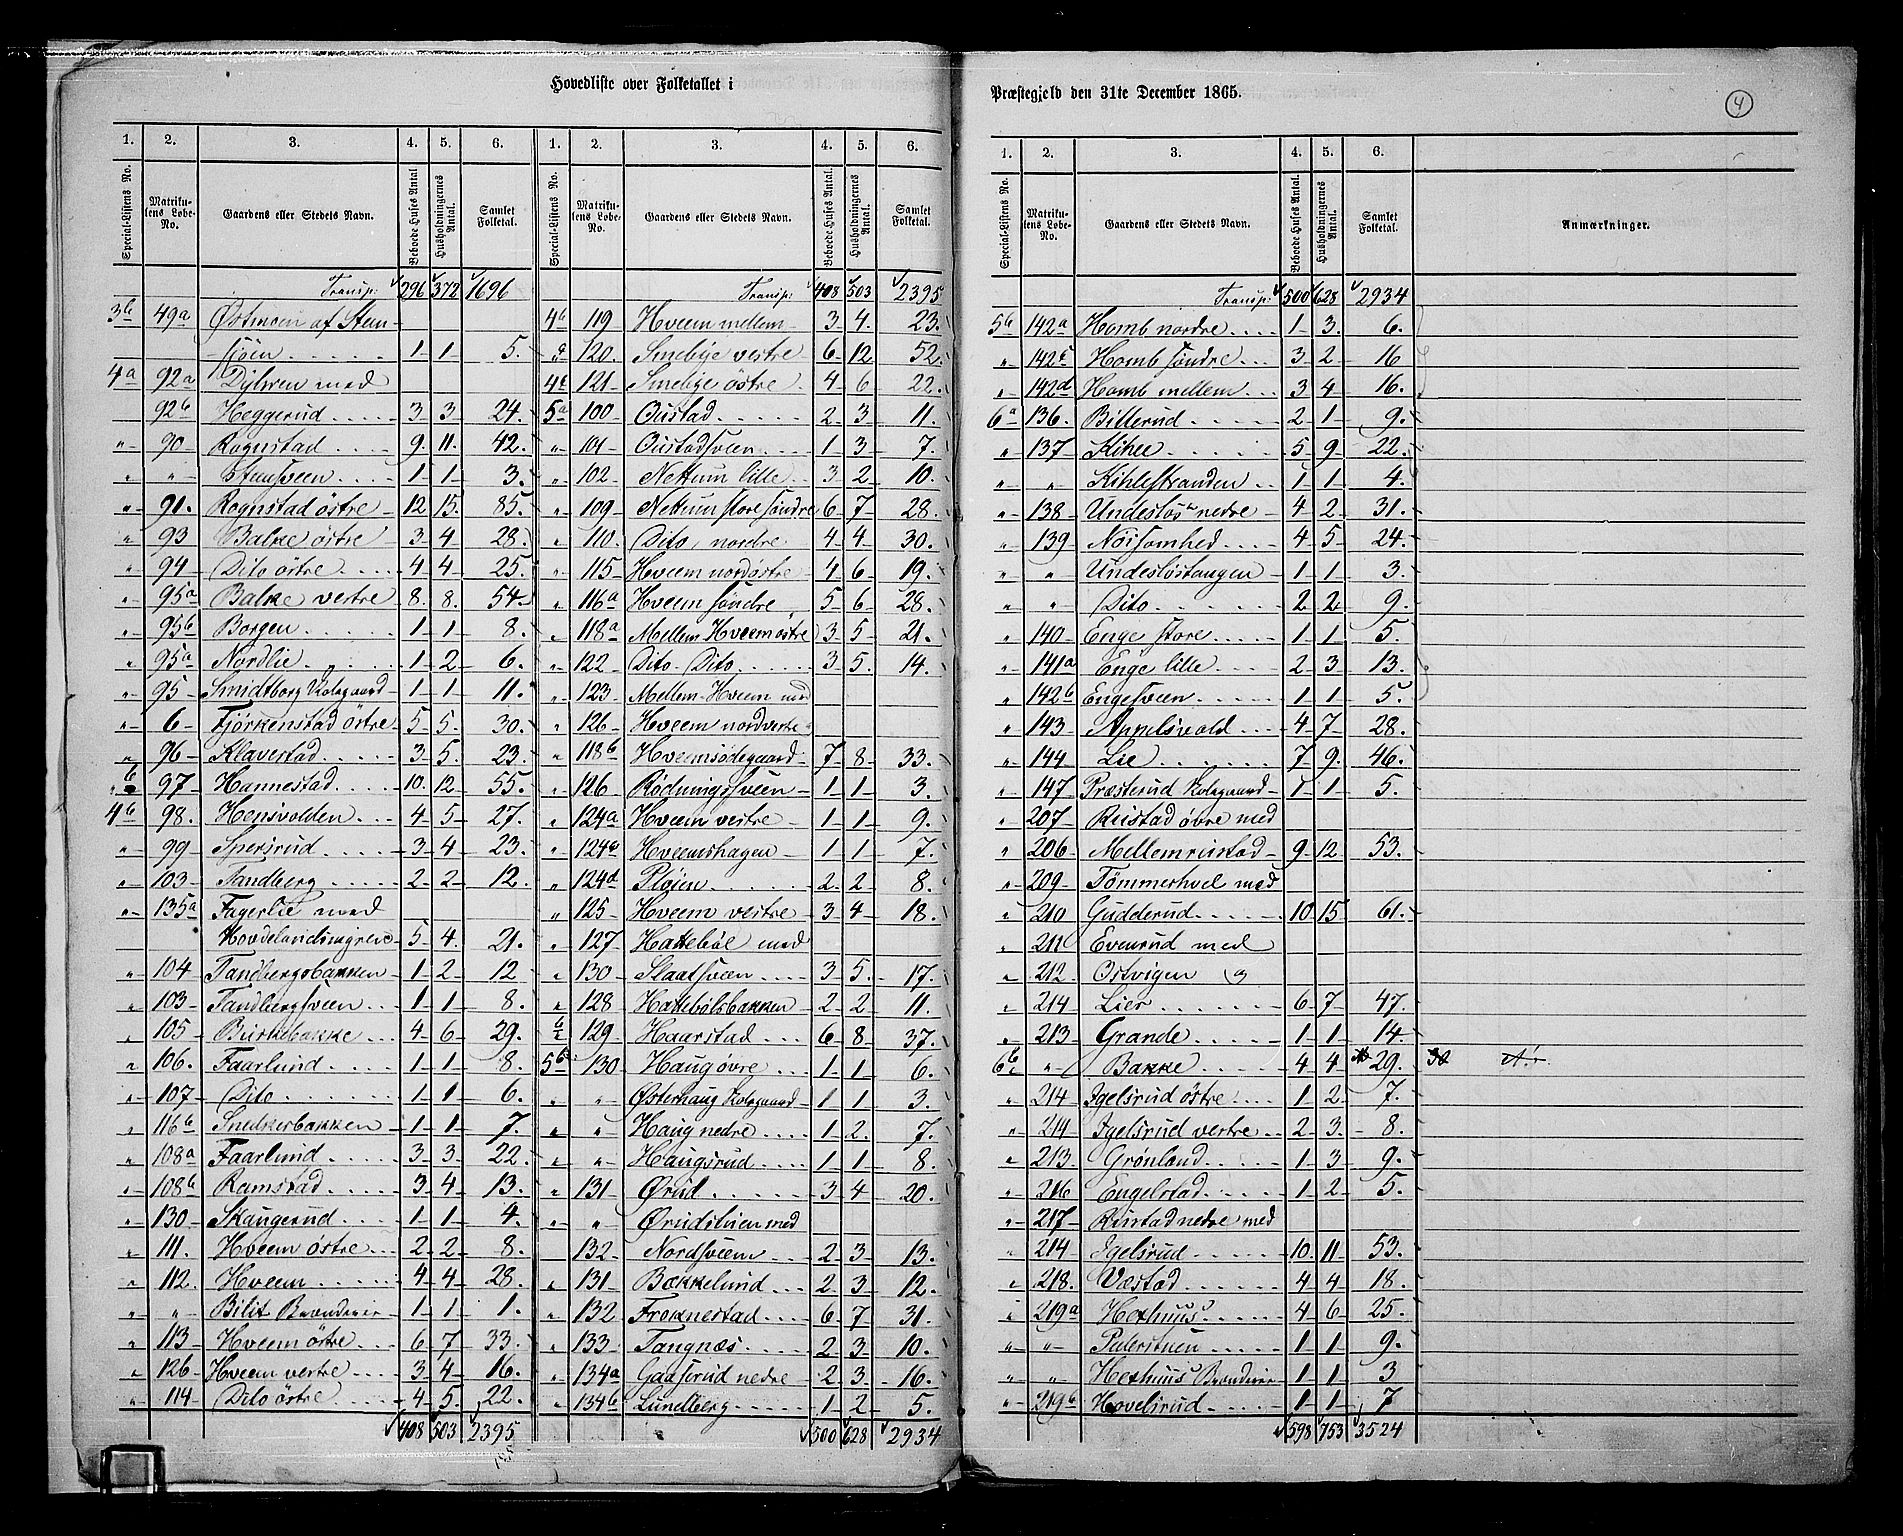 Hovedliste over Folketallet i
Præstegjeld den 31te December 1865.
4
1. 2. 3. 4. 5. 6.
Special-Listens No. Matrikulens Løbe-No. Gaardens eller Stedets Navn. Beboede Huses Antal Husholdningernes Antal. Samlet Folketal.
Transp: 296 372 1696
3b 49a Østmoen af Stensjøen 1 1 5.
4a 92a Dyhren med
92b Heggerud 3 3 24.
" 90 Rognstad 9. 11. 42.
" " Stensveen 1 1 3.
" 91. Rognstad östre 12 15. 85.
" 93 Balke östre 3 4 28.
" 94 Dito östre 4 4 25.
" 95a Balke vestre 8. 8. 54.
" 95b Borgen 1 1 8.
" 95a Nordlie 1 2 6.
" 95 Smidtborg Kolsgaard 1 1 11.
" 6 Fjörkenstad östre 5 5 30.
" 96 Klavestad 3 5. 23.
" 97 Hannestad 10. 12 55.
4b 98. Hensvolden 4 5 27.
" 99 Spersrud 3 4 23.
" 103 Tandberg 2 2 12.
" 135a Fagerlie med
Hovdelandsengrene 5 4. 21.
" 104 Tandbergsbakken 1 2 12
" 103 Tandbergsveen 1 1 8.
" 105 Buskebakke 4 6 29.
" 106. Faarlund 1 1 8.
" 107 Dito 1 1 6.
" 116b Snekkerbakken 1 1 7.
" 108a Faarlund 3 3 22.
" 108b Ramstad 3 4 13.
" 130 Skaugerud 1 1 4.
" 111. Hveem östre 2 2 8.
" 112. Hveem 4 4 28.
" " Bilit Brænderier 1 1 1.
" 113 Hveem östre 6 7 33.
" 126 Hveem vestre 3 4 16.
" 114 Dito östre 4 5 22.
408 503 2395
1. 2. 3. 4. 5. 6.
Special-Listens No. Matrikulens Løbe-No. Gaardens eller Stedets Navn. Beboede Huses Antal. Husholdningernes Antal. Samlet Folketal.
Transp: 408 503 2395
4b 119 Hveem mellem 3 4. 23.
" 120. Smebye vestre 6 12 52.
121 Smebye östre 4 6 22.
5a 100 Oustad 2 3 11.
" 101 Oustadsveen 1 3 7.
" 102 Nettum lille 3 2 10.
" 109 Nettum store söndre 6 7 28.
" 110. Dito, nordre 4 4 30.
" 115 Hveem nordöstre 4 6 19.
" 116a Hveem söndre 5 6 28.
" 118a Mellem Hveem östre 3 5 21.
" 122 Dito Dito 3 5. 14.
" 123 Mellem-Hveem med
" 126 Hveem nordvestre
" 118b Hveemsödegaard 7 8 33.
" 126 Rödningsveen 1 1 3.
" 124a Hveem vestre 1 1 9.
" 124c Hveemshagen 1 1 7.
" 124d Pløien 2 2 8.
" 125 Hveem vestre 3 4 18.
" 127 Hakkeböl med
" 130 Slaatsveen 3 5. 17.
" 128 Hakkebölsbakken 2 2 11.
129 Haarstad 6 8 37.
5b 130 Haug øvre 1 1 6.
" " Østerhaug Kolsgaard 1 1 3.
" " Haug nedre 1 2. 7.
" " Haugsrud 1 1 8.
" 131 Ørud 3 4 20.
" " Ørudstuen med
132 Nordsveen 2 3 13.
" 131 Bækkelund 2 3 12.
" 132 Froknestad 6 7 31.
" 133 Tangnæs 2 3 10.
" 134a Gaasrud nedre 2 3. 16.
" 134b Lundberg 1 2 5.
500 628 2934
1. 2. 3. 4. 5. 6.
Special-Listens No. Matrikulens Løbe-No. Gaardens eller Stedets Navn. Beboede Huses Antal. Husholdningernes Antal. Samlet Folketal. Anmærkninger.
Transp: 500 628 2934
5b 142a Homb nordre 1 3. 6.
" 142c Homb söndre 3 2 16
" 142d Homb mellem 3 4 16.
6a 136. Billerud 2 1 9.
" 137 Kihle 5 9 22.
" " Kihlestranden 1 1 4.
" 138 Undeslös nedre 4 2 31.
" 139 Nöisomhed 4 5 24.
" " Undeslöstangen 1 1 3.
" " Dito 2 2 9.
" 140 Enge store 1 1 5.
" 141a Enge lille 2 3 13.
" 142b Engesveen 1 1 5.
" 143 Appelsvold 4 7 28.
" 144 Lie 7 9. 46.
" 147 Præsterud Kolsgaard 1 1 5.
" 207. Rustad övre med
" 206 Mellemrustad 9 12 53.
" 209 Tömmerhvel med
" 210 Gudderud 10 15 61.
" 211 Evenrud med
" 212 Ostvigen og
" 214 Lier 6 7 47.
" 213 Grande 1 1 14.
6b " Bakke 4 4 29.
" 214 Igelsrud östre 1 2 7.
" 214 Igelsrud vestre 2 3. 8.
" 213. Grønland 1 3 9.
" 216 Engelstad 1 2 5.
" 217 Rustad nedre med
" 214 Igelsrud 10. 11 53.
" 218. Væstad 4 4 18.
" 219a Hexhuus 4 6 25.
" " Palerstuen 1 1 9.
" " Hexhuus Brænderier 1 1 3
" 219b Hovelsrud 1 1 7
598 753 3524